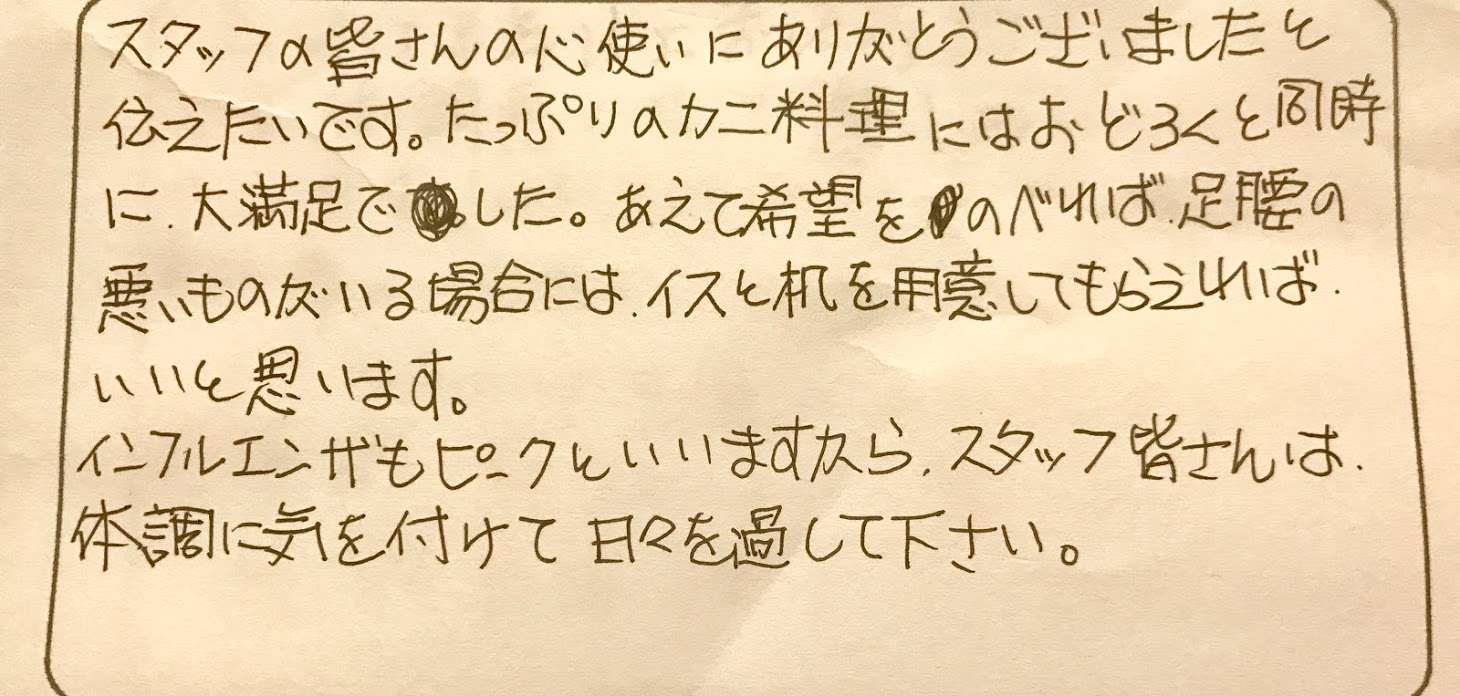 スタッフの皆さんの心使いにありがとうございましたと
伝えたいです。たっぷりのカニ料理にはおどろくと同時
に、大満足でした。あえて希望をのべれば、足腰の
悪いものがいる場合には、イスと机を用意してもらえれば、
いいと思います。
インフルエンザもピークといいますから、スタッフ皆さんは、
体調に気を付けて日々を過して下さい。